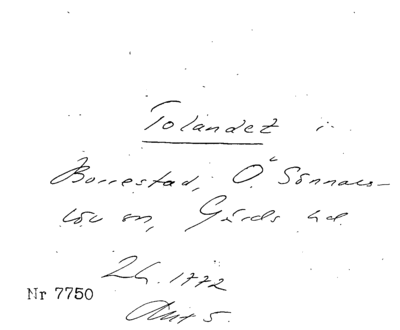 Tolandet i
Borrestad, Ö. Sönnars-
löv sn, Gärds hd.
Lh. 1772
Nr 7750
Akt 5.